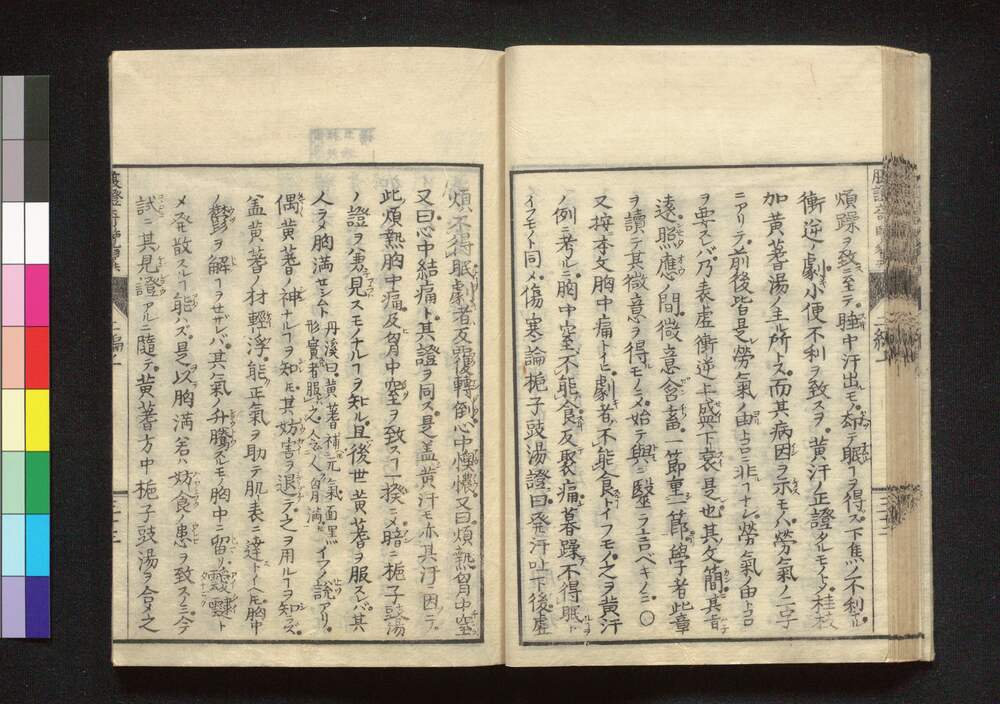 煩躁ヲ致ニ至テ睡中汗出モ却テ眠ヿヲ得ズ下焦ノ不利ナル
衝逆ノ劇小便不利ヲ致スヲ黄汗ノ正證タルモノトメ桂枝
加黄蓍湯ノ主ル所トス而其病因ヲ示モハ勞氣ノ二字
ニアリテ前後皆是勞氣ノ由トコロニ非ヿナシ勞氣ノ由トコロ
ヲ要スレバ乃表虛衝逆上盛下衰是也其文簡其旨
遠照應ノ間微意含畜一節重一節學者此章
ヲ讀テ其微意ヲ得モノニメ始テ與ニ毉ヲ言ベキノミ○
又按本文胸中痛トイヒ劇者不能食トイフモノ之ヲ黄汗
ノ例ニ考ルニ胸中窒不能食反聚痛暮躁不得眠ト
イフモノト同メ傷寒論梔子豉湯證曰發汗吐下後虛
煩不得眠劇者反覆轉倒心中懊憹又曰煩熱胷中窒
又曰心中結痛ト其證ヲ同ス是盖黄汗モ亦其汗ニ因テ
此煩熱胸中痛及胷中窒ヲ致スヿ一揆ニメ暗ニ梔子豉湯
ノ證ヲ兼見スモノナルヿヲ知ル且後世黄蓍ヲ服スレバ其
人ヲメ胸滿セシムト丹溪曰黄蓍補元氣面黒形實者服之令人胷滿イフノ說アリ
偶黄蓍ノ神ナルヿヲ知モ其妨害ヲ退テ之ヲ用ルヿヲ知ラズ
盖黄蓍ノ材輕浮能正氣ヲ助テ肌表ニ達トイヘ𪜈胸中
ノ鬱ヲ解ヿヲセザレバ其氣ノ升騰スルモノ胸中ニ留リ靉靆ト
メ發散スルヿ能ハズ是以胸滿若ハ妨食ノ患ヲ致スノミ今
試ニ其見證アルニ隨テ黄蓍方中梔子豉湯ヲ合メ之